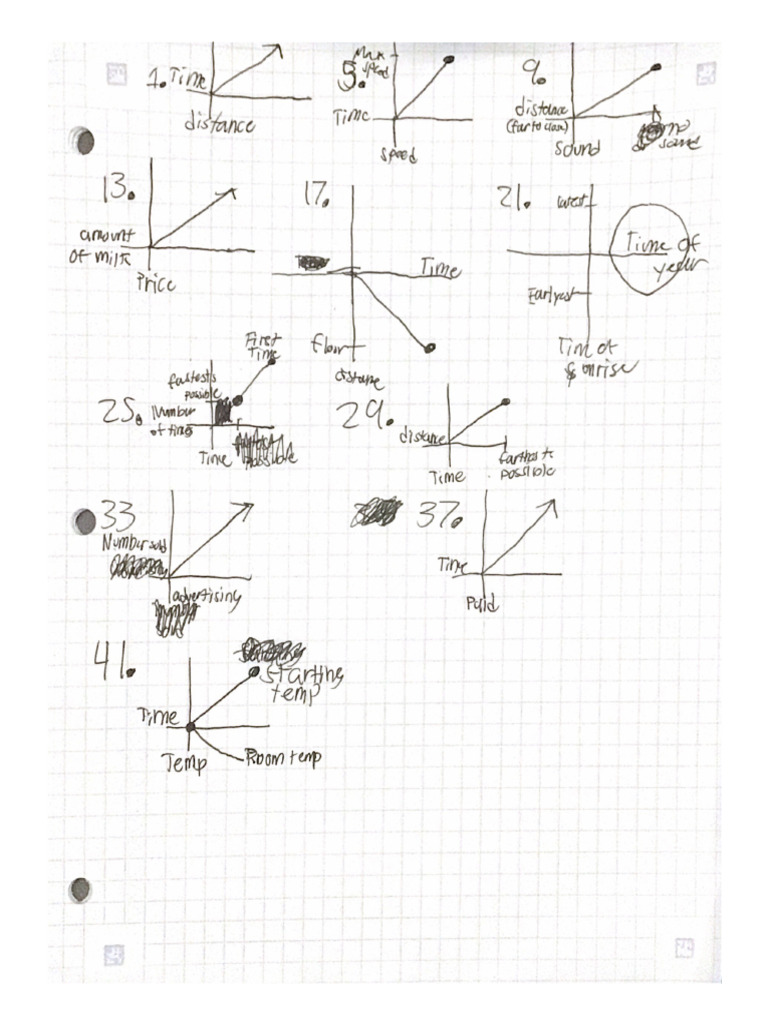 1. Time
distance
5.
Max
speed
Time
Speed
9.
distance
(far to close)
Sound
no
sound
13.
amount
of milk
Price
17.
Time
floor
distane
21.
latest
Time of
year
Earlyest
Tim of
sunrise
25.
First
Time
fastests
possible
Number
of times
Time
29.
distance
Time
farthest
possible
33
Number sold
advertising
37.
Time
Paid
41.
starting
temp
Time
Temp
Room temp